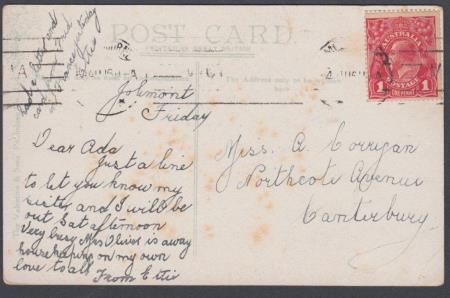 POST CARD
PRINTED IN GREAT BRITAIN
AUSTRALIA
POSTAGE
1 1
ONE PENNY
The Address only to be
Jolimont
Friday
Dear Ada
Just a line
to let you know my
sister and I will be
out Sat afternoon
Very busy Mrs Oliver is away
housekeeping on my own
love to all
From Ettie
Miss A. Corrigan
Northcote Avenue
Canterbury